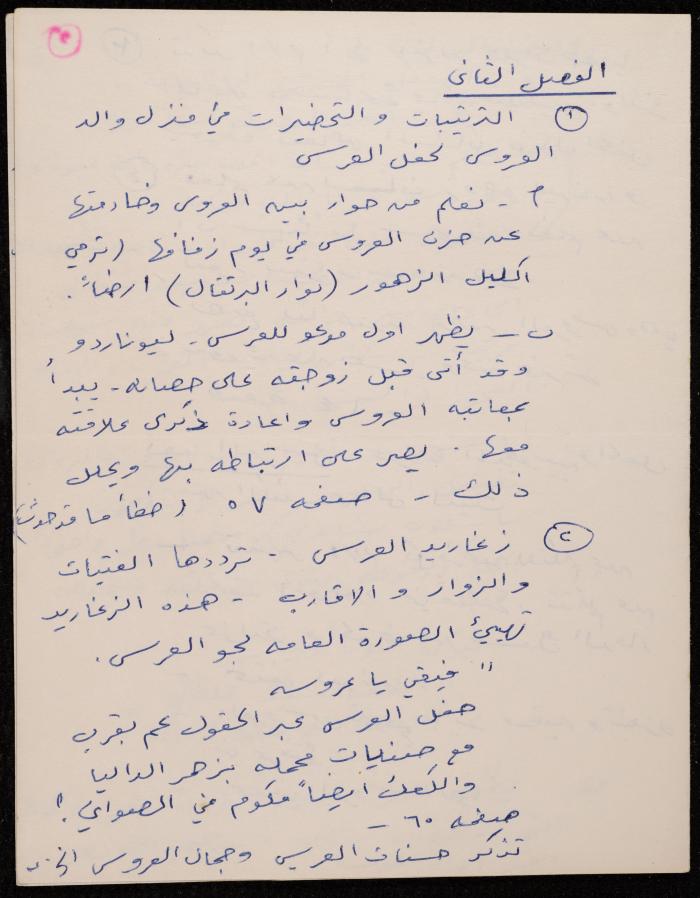 الفصل الثانى
١ الترتيبات والتحضيرات في منزل والد
العروس لحفل العرس
أ - نعلم من حوار بين العروس وخادمتها
عن حزن العروس في يوم زفافها (ترمي
اكليل الزهور (نوار البرتقال) ارضاً.
ب - يظهر اول مدعو للعرس - ليوناردو
وقد أتى قبل زوجته على حصانه - يبدأ
بمعاتبة العروس واعادة ذكرى علاقته
معها. يصر على ارتباطه بها ويعلل
ذلك - صفحه ٥٧ (خطأ ما قد حدث)
٢ زغاريد العرس - ترددها الفتيات
والزوار والاقارب - هذه الزغاريد
تهيئ الصورة العامه لجو العرس.
" فيقي يا عروسه
حفل العرس عبر الحقول عم بقرب
مع صينيات محمله بزهر الداليا
والكعك ايضاً مكوم في الصواني "!
صفحه ٦٠ -
تذكر حسنات العريس وجمال العروس الخ..